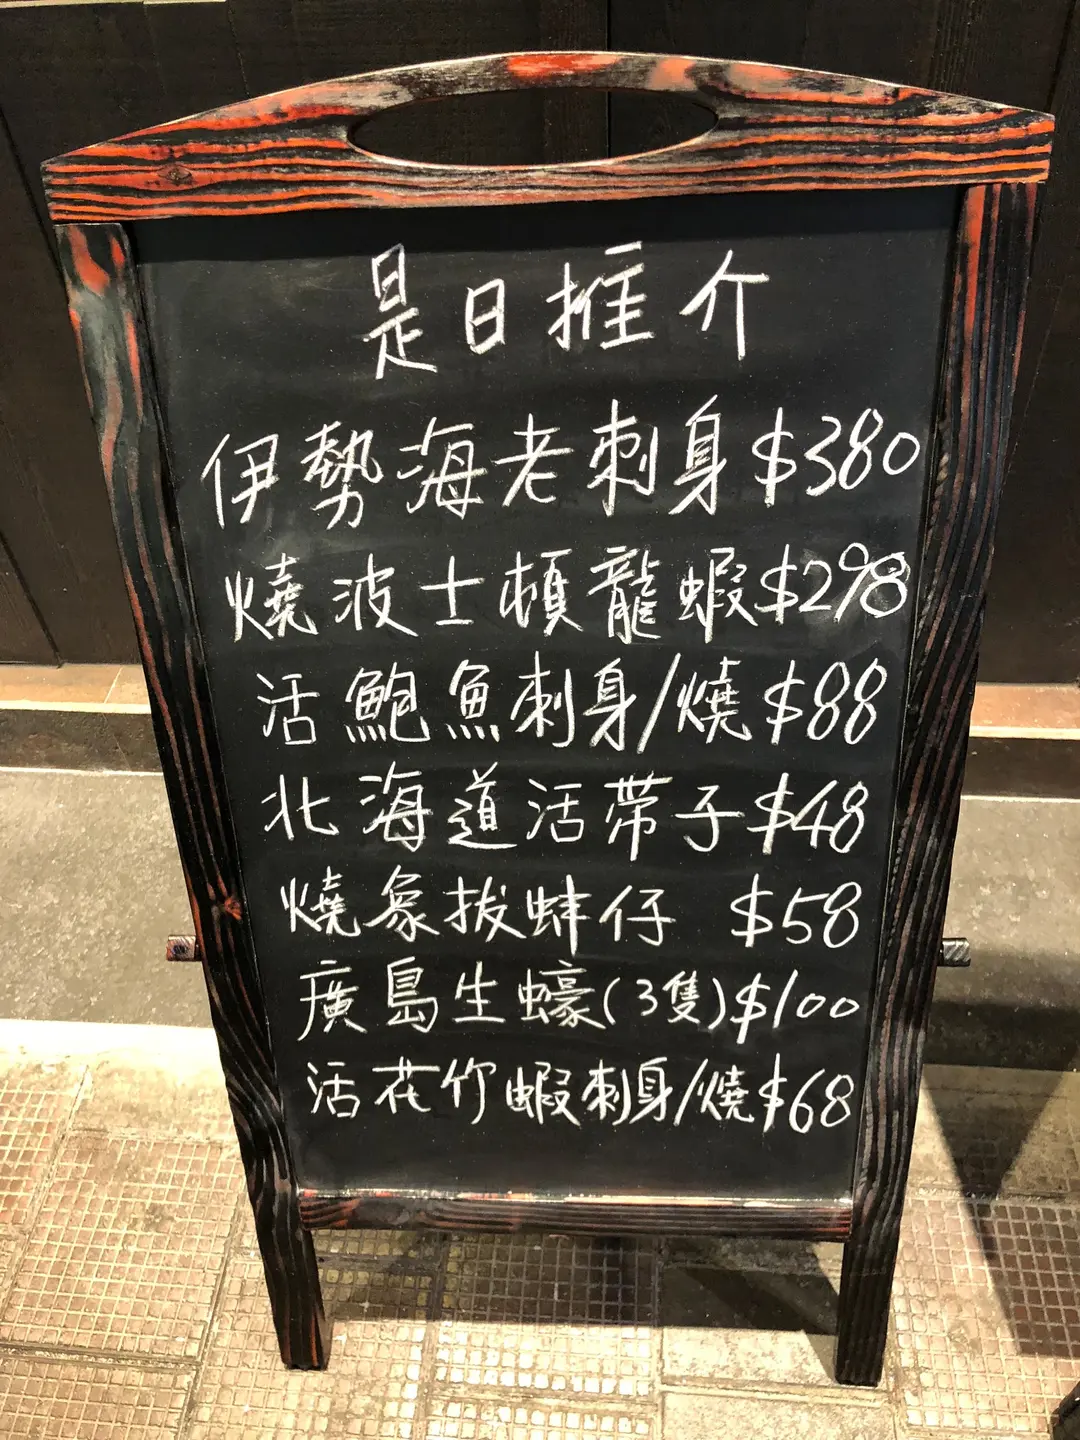 是日推介
伊勢海老刺身$380
燒波士頓龍蝦$298
活鮑魚刺身/燒$88
北海道活帶子$48
燒象拔蚌仔 $58
廣島生蠔(3隻)$100
活花竹蝦刺身/燒$68